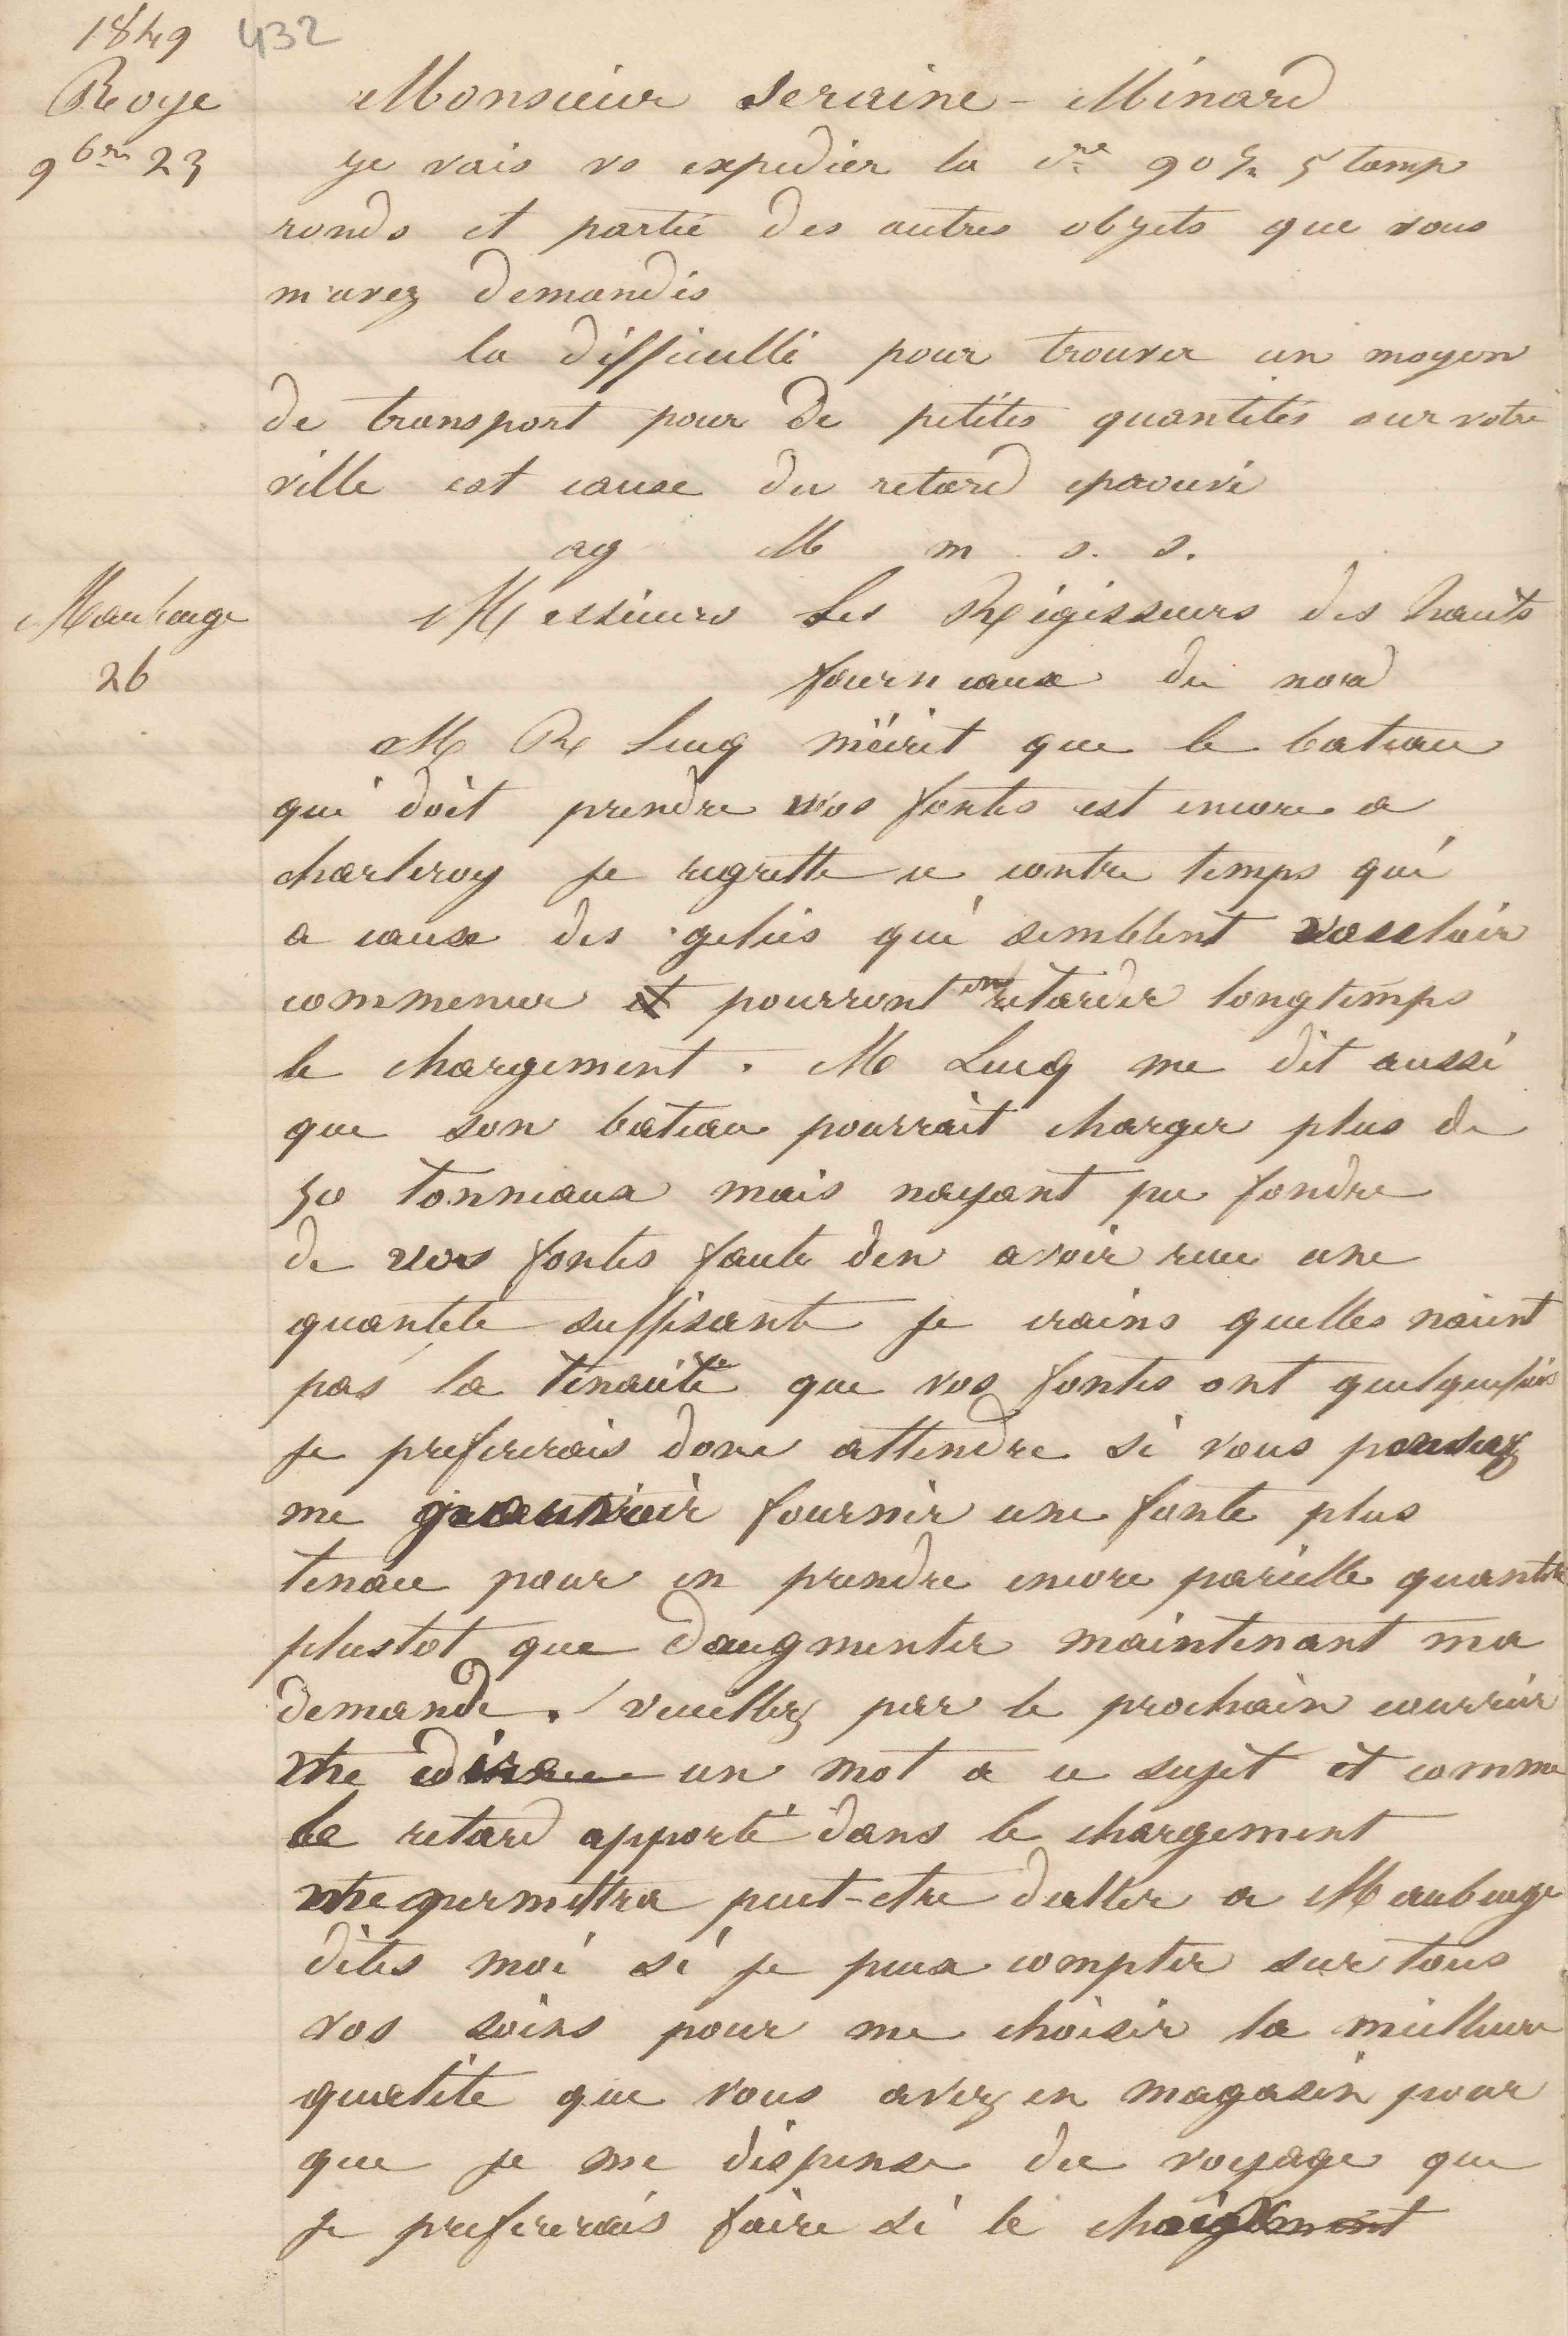 1849 432
Roye
9bre 23
Monsieur Seraine-Minard
je vais vs expedier la 90 5 tamp
ronds et partie des autres objets que vous
m'avez demandés
la difficulté pour trouver un moyen
de transport pour de petites quantités sur votre
ville est cause du retard eprouvé
ag M m s. s.
Maubeuge
26
Messieurs Les Régisseurs des hauts
fourneaux du nord
M R Lucq m'écrit que le bateau
qui doit prendre vos fontes est encore a
charleroy je regrette ce contre temps qui
a cause des gelées qui semblent vouloir
commencer pourront en retarder longtemps
le chargement. M Lucq me dit aussi
que son bateau pourrait charger plus de
50 tonneaux mais nayant pu fondre
de vos fontes faute den avoir recu une
quantete suffisante je crains quelles naient
pas la ténacité que vos fontes ont quelquefois
je prefererais donc attendre si vous pensez
me pouvoir fournir une fonte plus
tenace pour en prendre encore pareille quantité
plustot que daugmenter maintenant ma
demande. veuillez par le prochain courrier
me dire un mot a ce sujet et comme
le retard apporté dans le chargement
me permettra peut-etre daller a Maubeuge
dites moi si je puis compter sur tous
vos soins pour me choisir la meilleure
qualité que vous avez en magasin pour
que je me dispense du voyage que
je prefererais faire si le choix